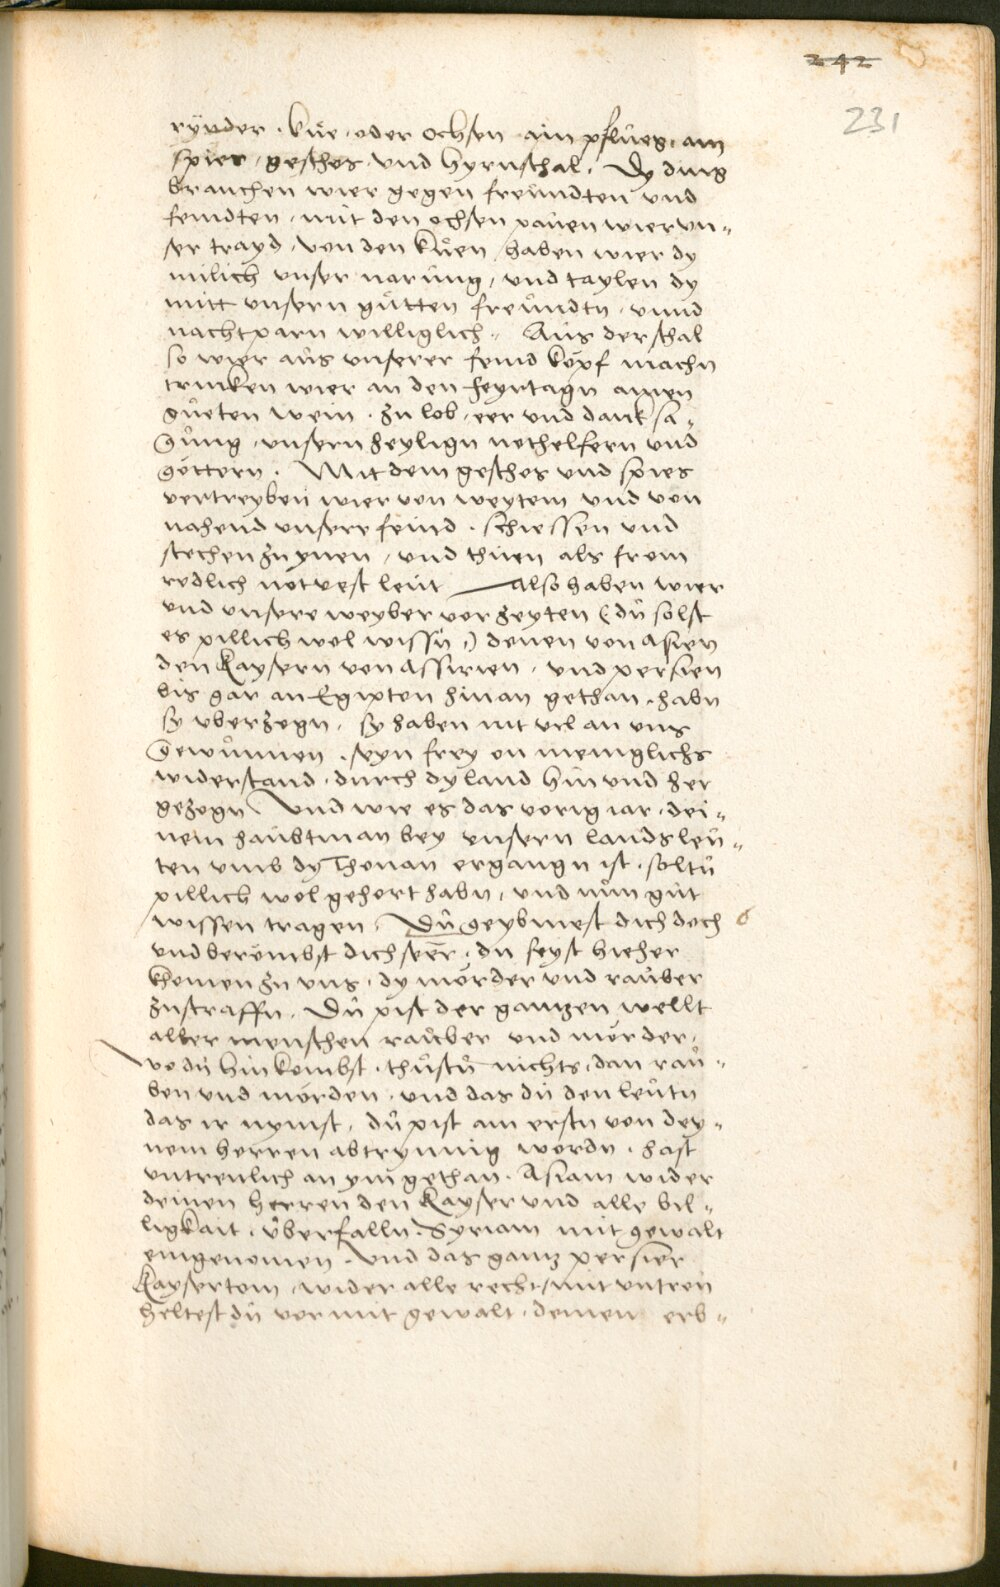 242
231
rÿnder . küe . oder ochsen . ain pflüeg, ain
spies, geschos . und hyrnschal. Dy ding
brauchen wier gegen freündten und
feindten, mit den ochsen paüen wier un=
ser trayd, von den küen haben wier dy
milich unser narüng, und taylen dy
mitt unsern gütten freündtn, unnd
nachtparn williglich. Aus der schal
so wier aüs unserer feind köpf machn
trinken wier an den feyrtagn ainen
güeten wein . zu lob, eer und dank sa=
güng, unsern heylign nothelfern und
göttern. Mit dem geschos und spies
vertreyben wier von weytem und von
nahend unsere feind . schiessen und
stechen zu ynen, und thüen als from
redlich notvest leüt — also haben wier
und unsere weyber vor zeyten (dü solst
es pillich wol wissn,) denen von Asien
den Kaysern von Assirien, und persien
bis gar an Egipten hinan gethan, habn
sy uberzogn, sy haben nit vil an uns
gewünnen, seyn frey on meniglichs
widerstand . durch dy land hin und her
gezogn. Und wie es das vorig iar . dei=
nem haübtman bey unsern landsleü=
ten umb dy Thonau ergangn ist, soltü
pillich wol gehort habn, und nün güt
wissen tragen. Dü geybmest dich doch
und berömbst dich seer, du seyst hieher
khomen zu uns, dy mörder und raüber
zustraffn. Dü pist der ganzen wellt
aller menschen raüber und mörder,
wo dü hinkombst, thüstü nichts, dan raü=
ben und mörden, und das dü den leütn
das ir nymst, dü pist am erstn von dey=
nem herren abtrynnig wordn . hast
untreulich an ym gethan. Asiam wider
deinen herren den Kayser und alle bil=
ligkait, überfalln. Syriam mit gewalt
eingenomen. Und das ganz persier
Kaysertom, wider alle recht, mit untreü
heltest dü vor mit gewalt, deinem erb=